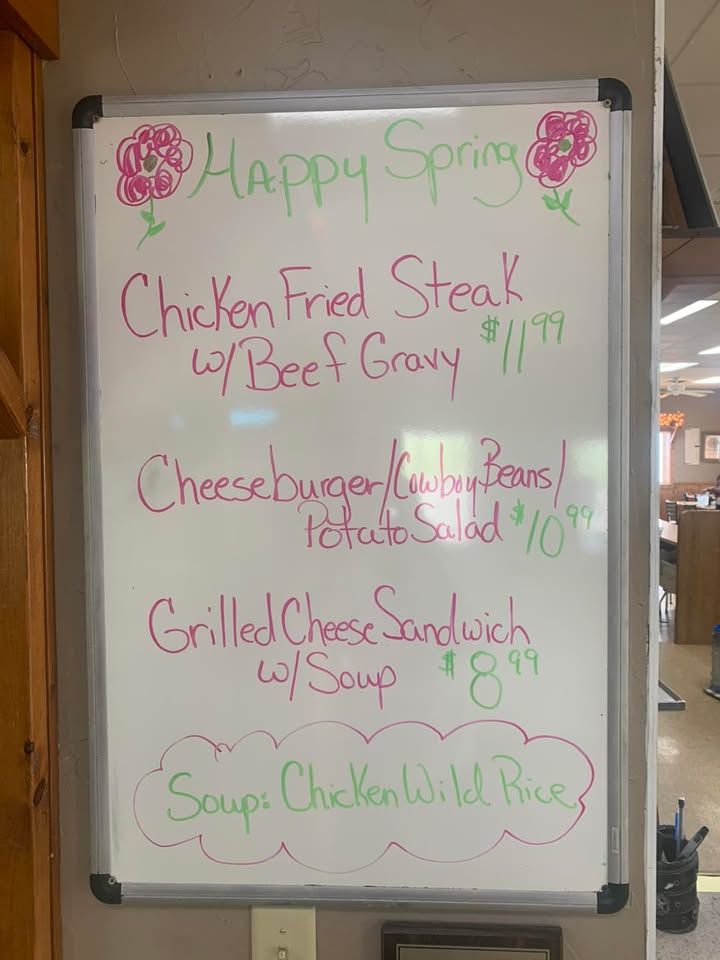 Happy Spring
Chicken Fried Steak
w/Beef Gravy $11.99
Cheeseburger/Cowboy Beans/
Potato Salad $10.99
Grilled Cheese Sandwich
w/Soup $8.99
Soup: Chicken Wild Rice